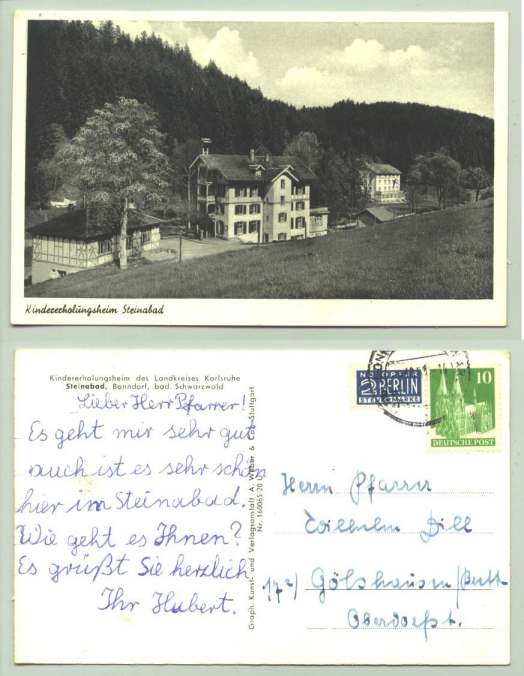 Kindererholungsheim Steinabad
Kindererholungsheim des Landkreises Karlsruhe
Steinabad, Bonndorf, bad. Schwarzwald
Lieber Herr Pfarrer!
Es geht mir sehr gut
auch ist es sehr schön
hier im Steinabad.
Wie geht es Ihnen?
Es grüßt Sie herzlich
Ihr Hubert.
Graph. Kunst- und Verlagsanstalt A. Weber & Co., Stuttgart
Nr. 160065 20
NOTOPFER
2 BERLIN
STEUERMARKE
10
DEUTSCHE POST
Herrn Pfarrer
Wilhelm Dill
17a) Gölshausen/Brett
Oberdorfst.